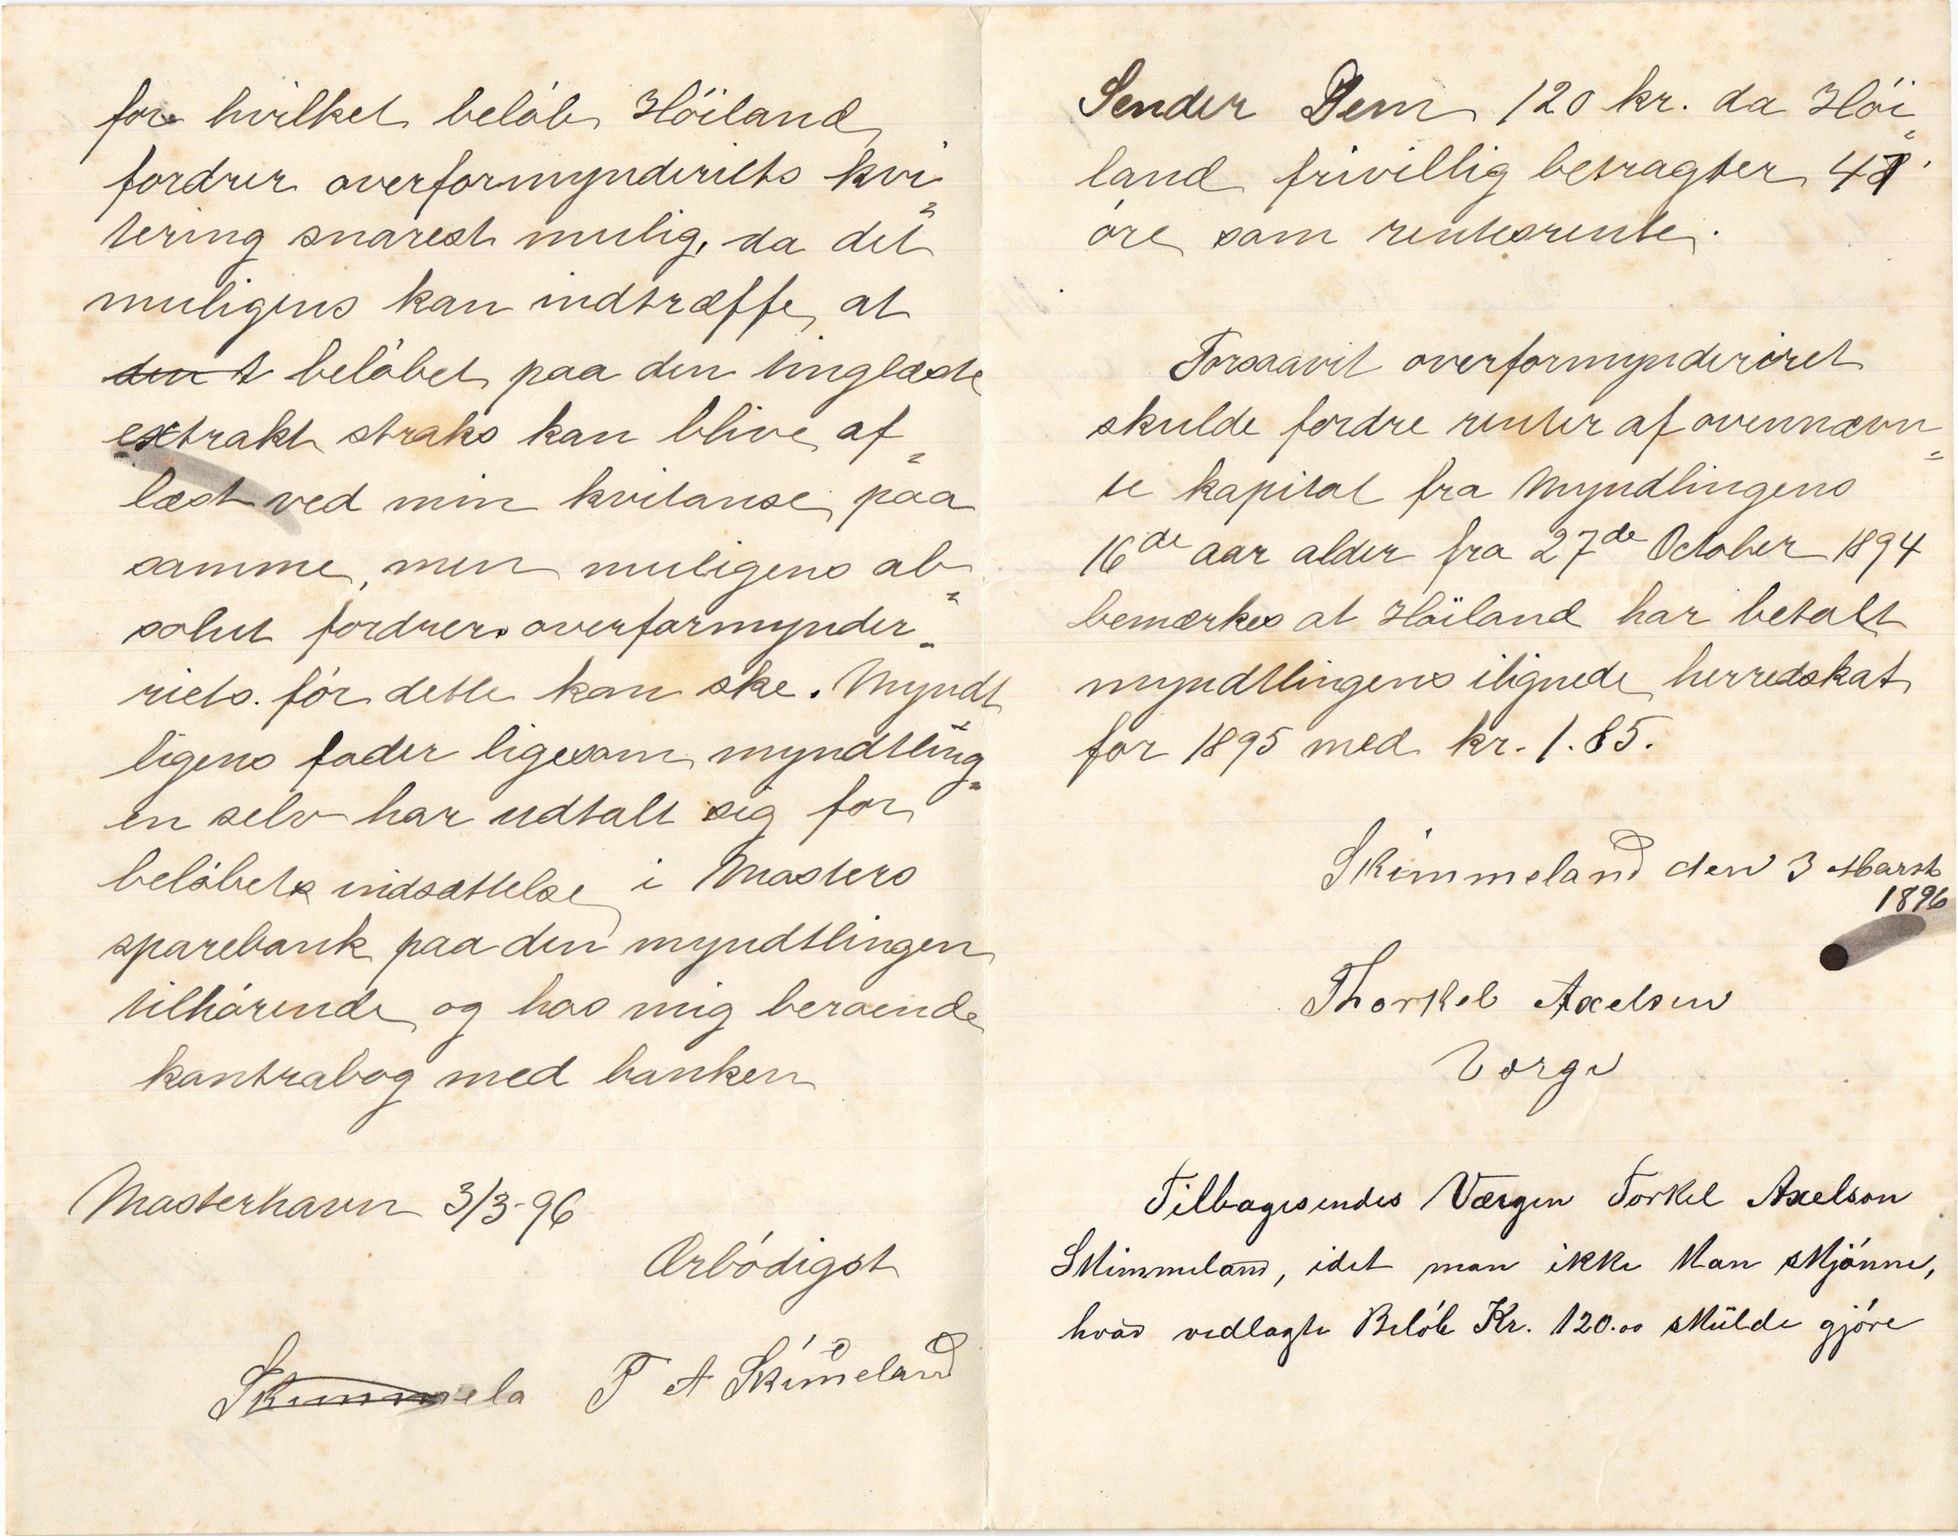 for hvilket beløb Høiland
fordrer overformynderiets kvi=
tering snarest mulig, da det
muligens kan indtræffe, at
den t beløbet paa den tinglæste
extrakt straks kan blive af=
læst ved min kvitanse paa
samme, men muligens ab=
solut fordrer overformynder=
riets. før dette kan ske. Myndt
ligens fader ligesom myndtling=
en selv har udtalt sig for
beløbets indsættelse i Mosters
sparebank paa den myndtlingen
tilhørende og hos mig beroende
kontrabog med banken
Mosterhavn 3/3-96
Ærbødigst
Skimmela T A Skim̄eland
Sender Dem 120 kr. da Høi=
land frivillig betragter
øre som rentesrente.
Forsaavit overformynderiret
skulde fordre renter af ovennævn=
te kapital fra Myndlingens
16de aar alder fra 27de October 1894
bemærkes at Høiland har betalt
myndtlingens ilignede herredskat
for 1895 med kr. 1.85.
Skimmeland den 3 Marst
1896
Thorkel Axelsen
Værge
Tilbagesendes Værgen Torkel Axelson
Skimmeland, idet man ikke kan skjønne,
hvad vedlagte Beløb Kr. 120.00 skulde gjøre